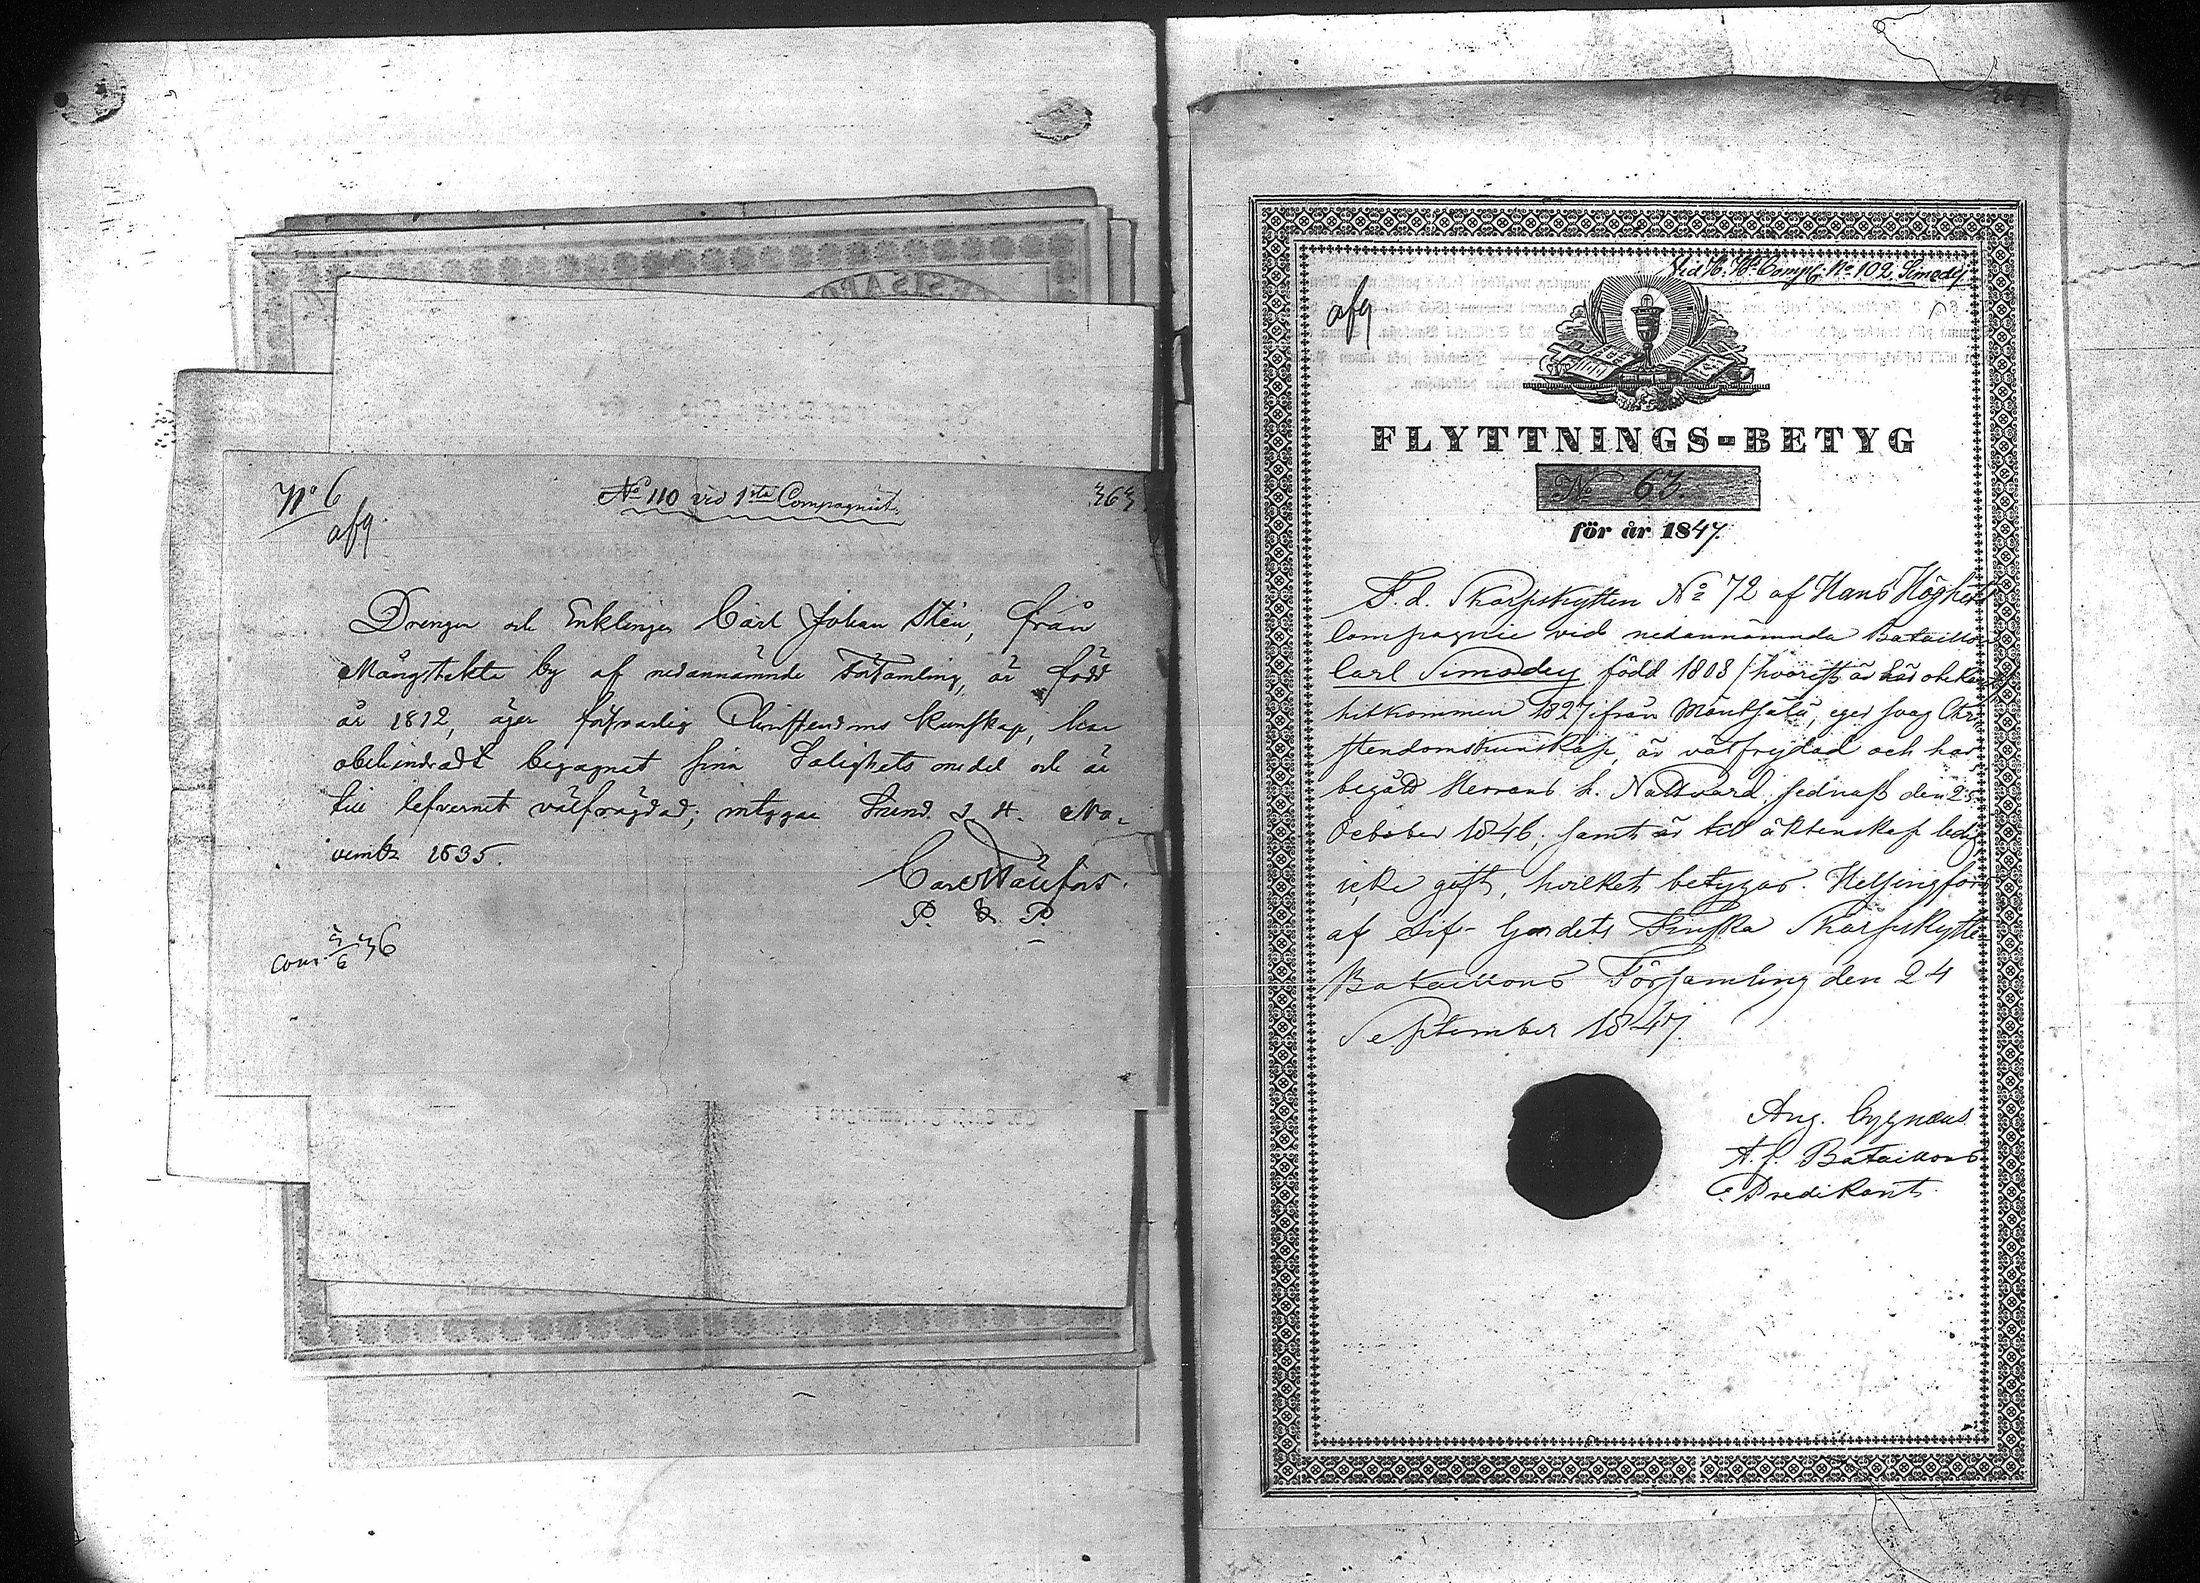 No 6
afg.
No 110 vid 1sta Compagniet.
363
Drengen och Enklingen Carl Johan Stén, från
Mångstekta by af nedannämnde Församling, är född
år 1812, äger försvarlig Christendoms kunskap, har
obehindradt begagnat sina Salighets medel och är
till lefvernet välfrägdad; intygar Sund. d. 4. No-
vemb. 1835.
Carl
P. & P.
Com. 3/6 36
Vid 1. Comp. No 102 Simody
afg
FLYTTNINGS-BETYG
No 63.
för år 1847.
F. d. Skarpskytten No 72 af Hans
Compagnie vid nedannämnda Bataillon
Carl Simodey född 1808 /hvarest är här obekant/
hitkommen 1827 ifrån Mäntsälä, eger svag Chri-
stendomskunskap, är välfrejdad och har
begått Herrans h. Nattvard sednast den 25
October 1846; samt är till äktenskap ledig
icke gift, hvilket betygas. Helsingfors
af Lif-Gardets Finska Skarpskytte
Bataillons Församling den 24
September 1847.
Aug. Cygnæus.
T. f. Bataillons
Predikant.